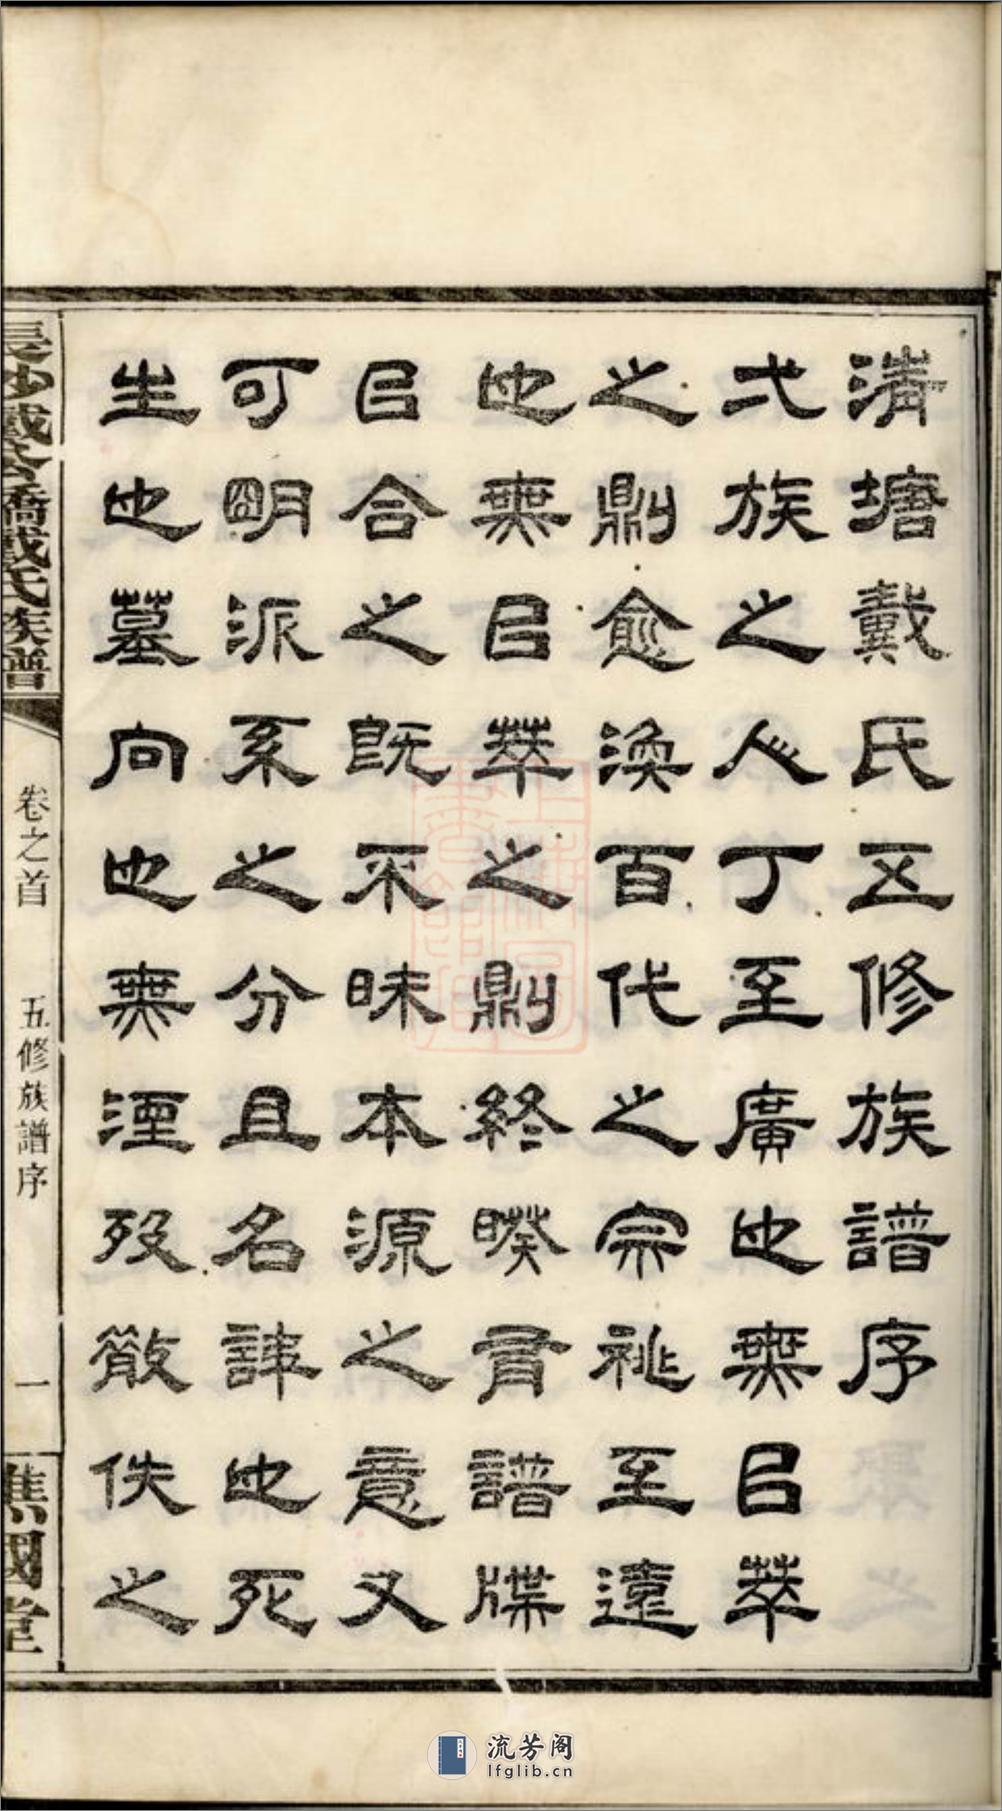 清塘戴氏五修族譜序
弌族之人丁至廣也無㠯萃
之鼎愈渙百代之宗祧至遠
也無㠯萃之鼎終暌有譜牒
㠯合之既不昧本源之意又
可明派系之分且名諱也死
生也墓向也無湮歿散佚之
長沙戴公橋戴氏族譜
卷之首
五修族譜序
一
譙國堂
流芳阁
lfglib.cn